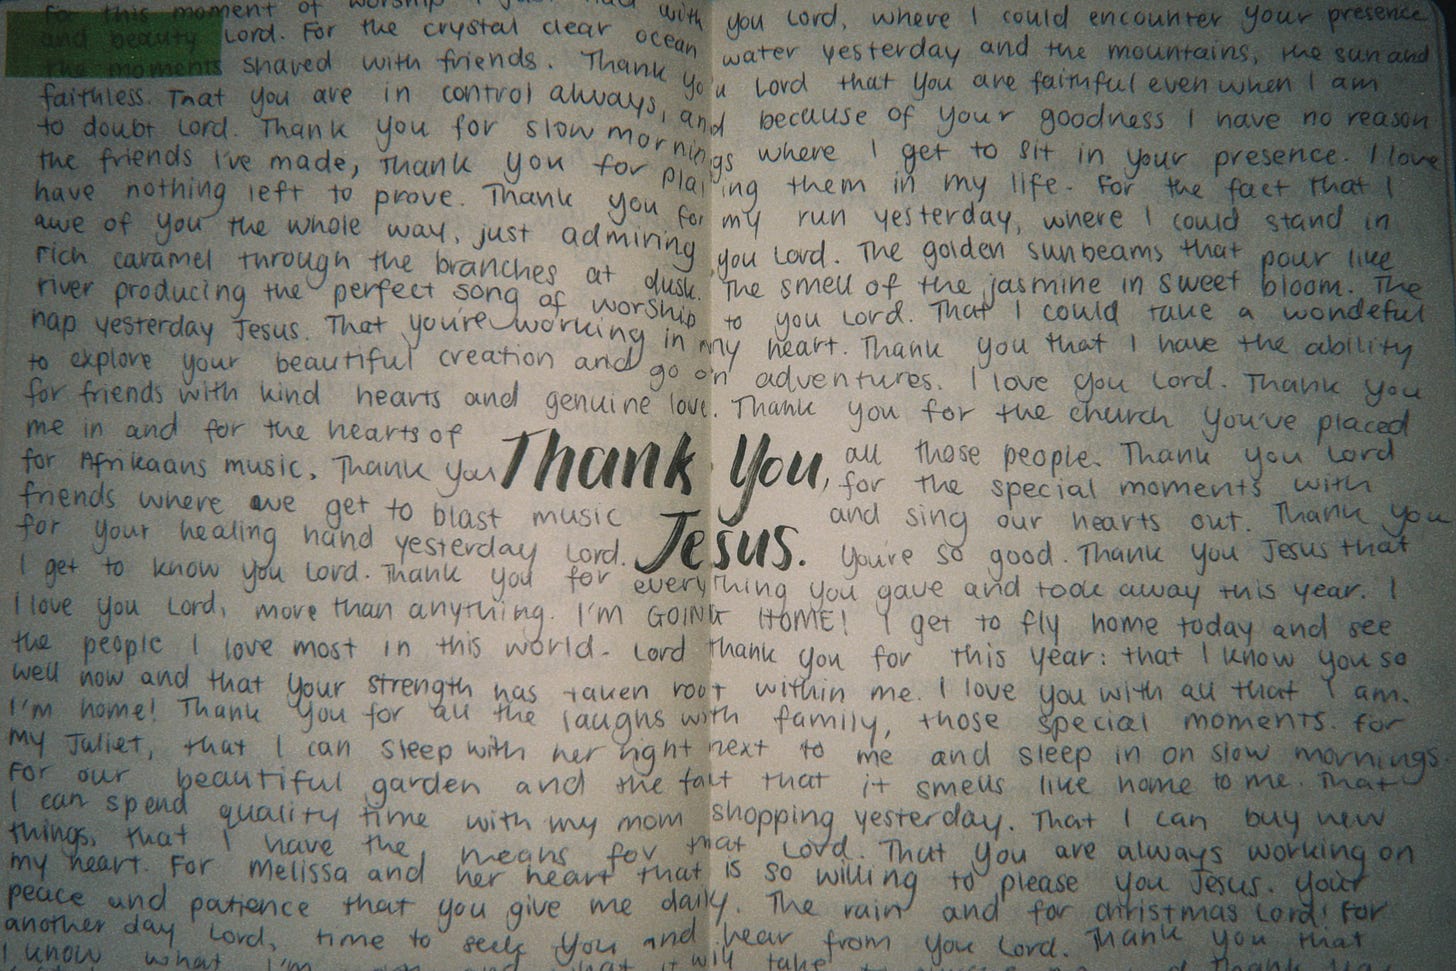 for this moment of worship I just had with you Lord, where I could encounter your presence
and beauty Lord. For the crystal clear ocean water yesterday and the mountains, the sun and
the moments shared with friends. Thank you Lord that you are faithful even when I am
faithless. That you are in control always, and because of your goodness I have no reason
to doubt Lord. Thank you for slow mornings where I get to sit in your presence. I love
the friends I've made, thank you for placing them in my life. For the fact that I
have nothing left to prove. Thank you for my run yesterday, where I could stand in
awe of you the whole way, just admiring you Lord. The golden sunbeams that pour like
rich caramel through the branches at dusk. The smell of the jasmine in sweet bloom. The
river producing the perfect song of worship to you Lord. That I could take a wondeful
nap yesterday Jesus. That you're working in my heart. Thank you that I have the ability
to explore your beautiful creation and go on adventures. I love you Lord. Thank you
for friends with kind hearts and genuine love. Thank you for the church you've placed
me in and for the hearts of all those people. Thank you Lord
for Afrikaans music. Thank you for the special moments with
Thank You,
friends where we get to blast music and sing our hearts out. Thank you
for your healing hand yesterday Lord. You're so good. Thank you Jesus that
Jesus.
I get to know you Lord. Thank you for everything you gave and took away this year. I
I love you Lord, more than anything. I'M GOING HOME! I get to fly home today and see
the people I love most in this world. Lord thank you for this year: that I know you so
well now and that your strength has taken root within me. I love you with all that I am.
I'm home! Thank you for all the laughs with family, those special moments. For
my Juliet, that I can sleep with her right next to me and sleep in on slow mornings.
For our beautiful garden and the fact that it smells like home to me. That
I can spend quality time with my mom shopping yesterday. That I can buy new
things, that I have the means for that Lord. That you are always working on
my heart. For Melissa and her heart that is so willing to please you Jesus. Your
peace and patience that you give me daily. The rain and for christmas Lord! For
another day Lord, time to seek you and hear from you Lord. Thank you that
I know what I'm and what it will take